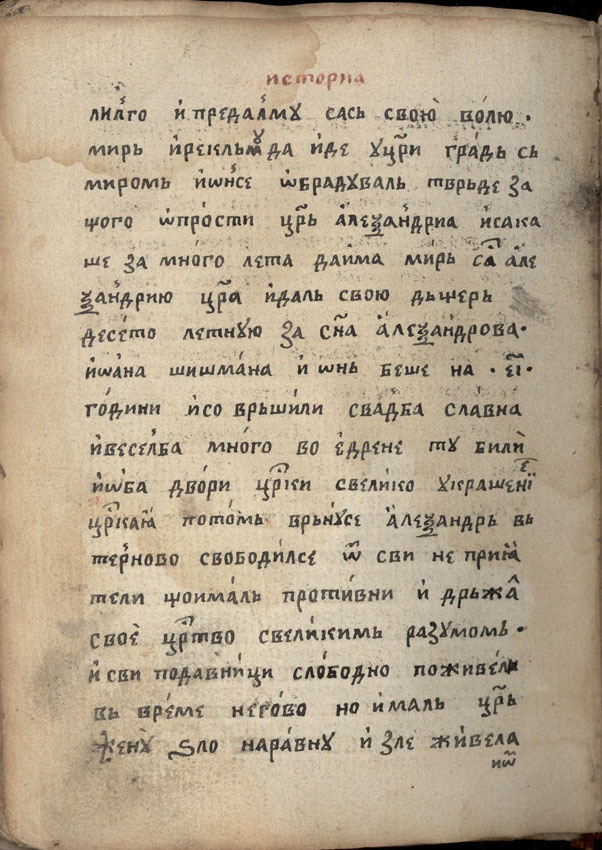 историа
лиаго и предалмꙋ сась свою волю ·
мирь и рекльмꙋ да иде ꙋ цр҃и градь сь
миромь и ѡнсе ѡбрадꙋваль тврьде за
щого ѡпрости цр҃ь алеѯандриа и сака
ше за много лета да има мирь са але
ѯандрию цр҃а и даль свою дьщерь
десето летнꙋю за сн҃а алеѯандрова ·
иѡана шишмана и ѡнь беше на · еі ·
години и со врьшили свадба славна
и веселба много во едрене тꙋ били
и ѡба двори цр҃ки с велико ꙋкрашениѥ
цр҃каꙗ потомь врьнꙋсе алеѯандрь вь
терново свободилсе ѿ сви не приꙗ
тели що ималь противни и дрьжа
свое цр҃тво с великимь разꙋмомь ·
и сви подавници слободно поживели
вь време негово но ималь цр҃ь
женꙋ ѕло наравнꙋ и зле живела
иѡ